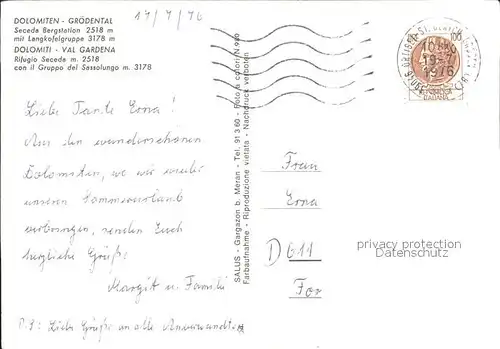 DOLOMITEN - GRÖDENTAL
Seceda Bergstation 2518 m
mit Langkofelgruppe 3178 m
DOLOMITI - VAL GARDENA
Rifugio Seceda m. 2518
con il Gruppo del Sassolungo m. 3178
Liebe Tante Erna!
Aus den wunderschönen
Dolomiten, wo wir wieder
unseren Sommerurlaub
verbringen, senden Euch
herzliche Grüße
Margit u. Familie
P.S: Liebe Grüße an alle Anverwandte
SALUS - Gargazon b. Meran - Tel. 91 3 60 - Foto a colori N 990
Farbaufnahme - Riproduzione vietata - Nachdruck verboten
100
ITALIANA
ORTISEI - ST. ULRICH
19-7
1976
Frau
Erna
D 611
privacy protection
Datenschutz